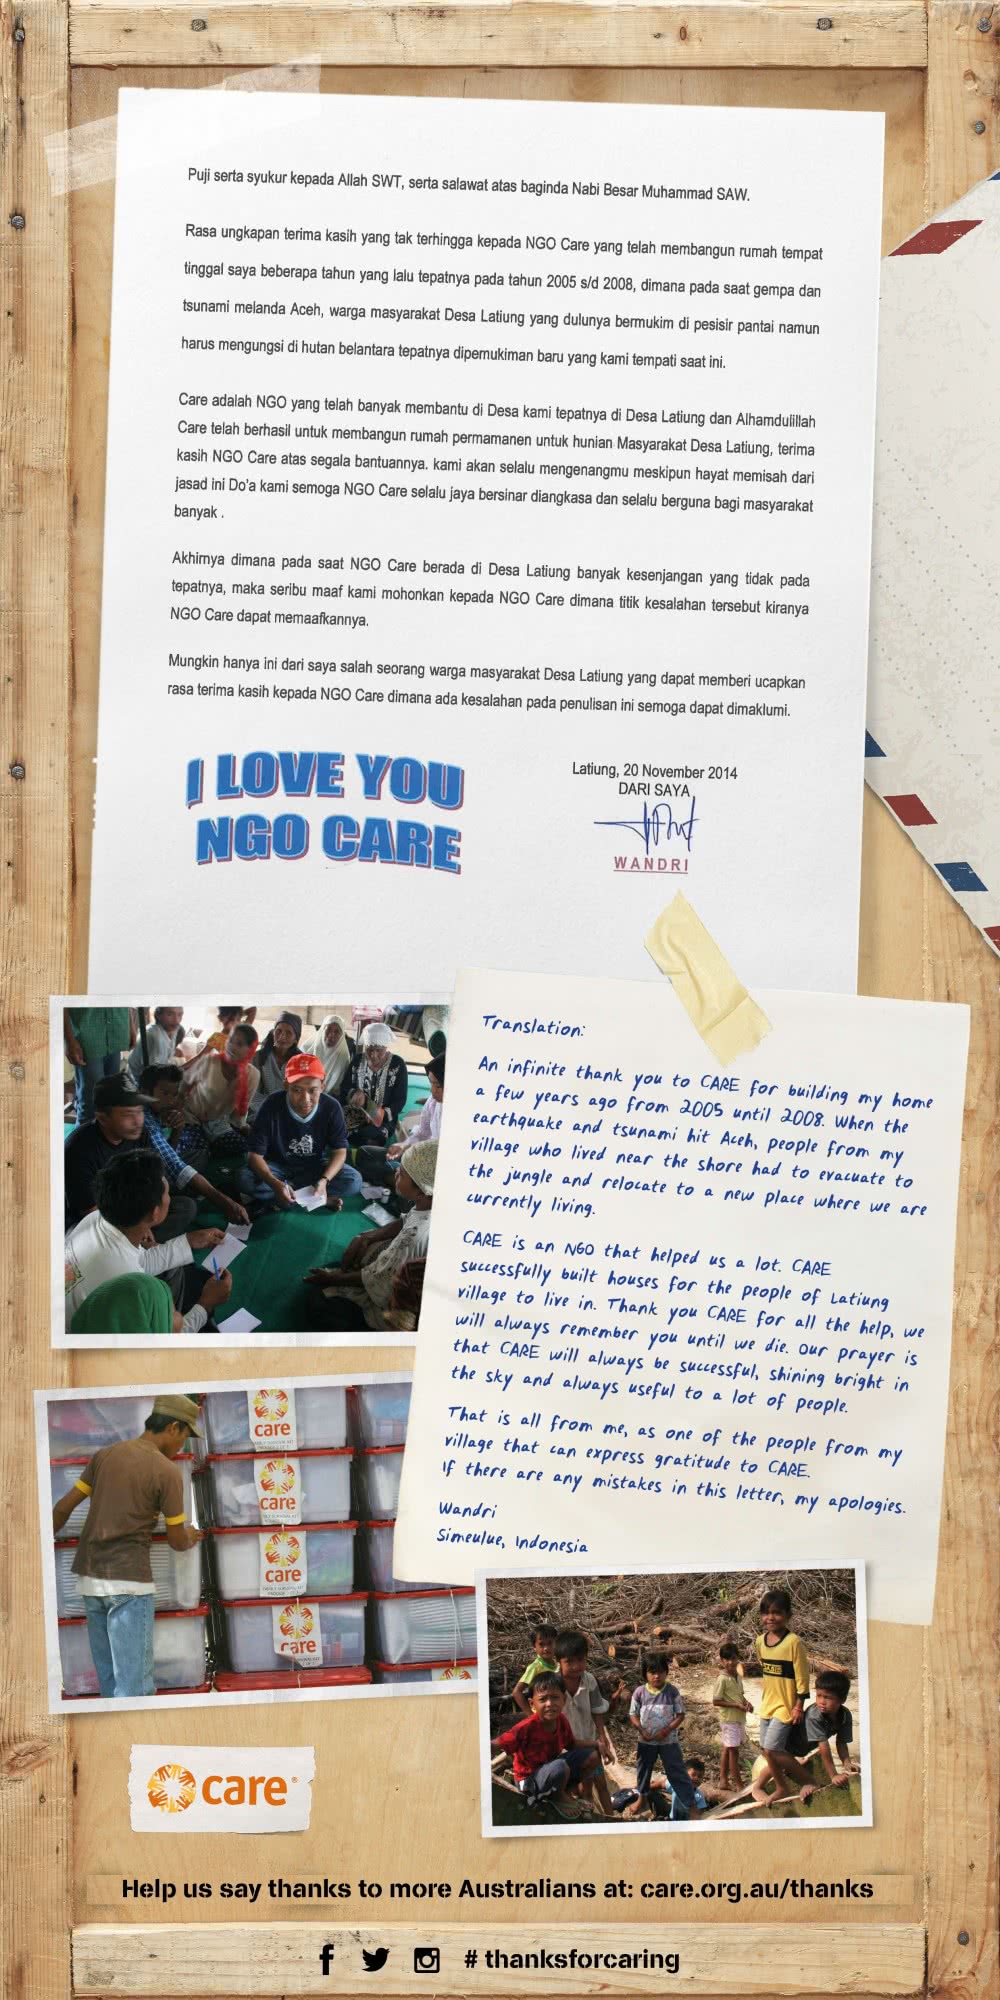 Puji serta syukur kepada Allah SWT, serta salawat atas baginda Nabi Besar Muhammad SAW.
Rasa ungkapan terima kasih yang tak terhingga kepada NGO Care yang telah membangun rumah tempat
tinggal saya beberapa tahun yang lalu tepatnya pada tahun 2005 s/d 2008, dimana pada saat gempa dan
tsunami melanda Aceh, warga masyarakat Desa Latiung yang dulunya bermukim di pesisir pantai namun
harus mengungsi di hutan belantara tepatnya dipemukiman baru yang kami tempati saat ini.
Care adalah NGO yang telah banyak membantu di Desa kami tepatnya di Desa Latiung dan Alhamdulillah
Care telah berhasil untuk membangun rumah permamanen untuk hunian Masyarakat Desa Latiung, terima
kasih NGO Care atas segala bantuannya. kami akan selalu mengenangmu meskipun hayat memisah dari
jasad ini Do'a kami semoga NGO Care selalu jaya bersinar diangkasa dan selalu berguna bagi masyarakat
banyak .
Akhirnya dimana pada saat NGO Care berada di Desa Latiung banyak kesenjangan yang tidak pada
tepatnya, maka seribu maaf kami mohonkan kepada NGO Care dimana titik kesalahan tersebut kiranya
NGO Care dapat memaafkannya.
Mungkin hanya ini dari saya salah seorang warga masyarakat Desa Latiung yang dapat memberi ucapkan
rasa terima kasih kepada NGO Care dimana ada kesalahan pada penulisan ini semoga dapat dimaklumi.
I LOVE YOU
NGO CARE
Latiung, 20 November 2014
DARI SAYA
WANDRI
Translation:
An infinite thank you to CARE for building my home
a few years ago from 2005 until 2008. When the
earthquake and tsunami hit Aceh, people from my
village who lived near the shore had to evacuate to
the jungle and relocate to a new place where we are
currently living.
CARE is an NGO that helped us a lot. CARE
successfully built houses for the people of Latiung
village to live in. Thank you CARE for all the help, we
will always remember you until we die. Our prayer is
that CARE will always be successful, shining bright in
the sky and always useful to a lot of people.
That is all from me, as one of the people from my
village that can express gratitude to CARE.
If there are any mistakes in this letter, my apologies.
Wandri
Simeulue, Indonesia
care
care
care
care
care
Help us say thanks to more Australians at: care.org.au/thanks
# thanksforcaring